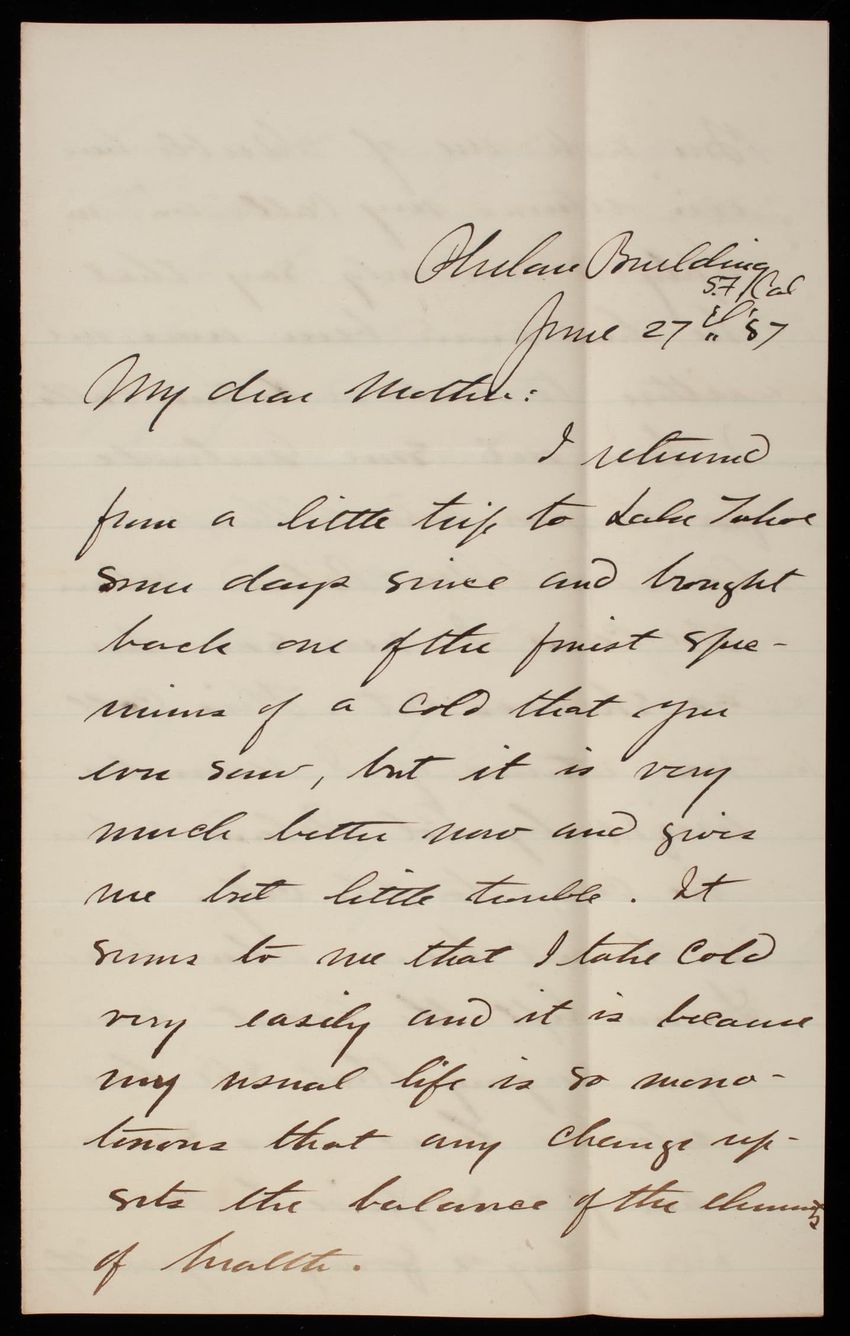 Phelan Building
S.F. Cal
June 27th 87
My dear Mother:
I returned
from a little trip to Lake Tahoe
some days since and brought
back one of the finest spec-
imens of a cold that you
ever saw, but it is very
much better now and gives
me but little trouble. It
seems to me that I take cold
very easily and it is because
my usual life is so mono-
tonous that any change up-
sets the balance of the elements
of health.